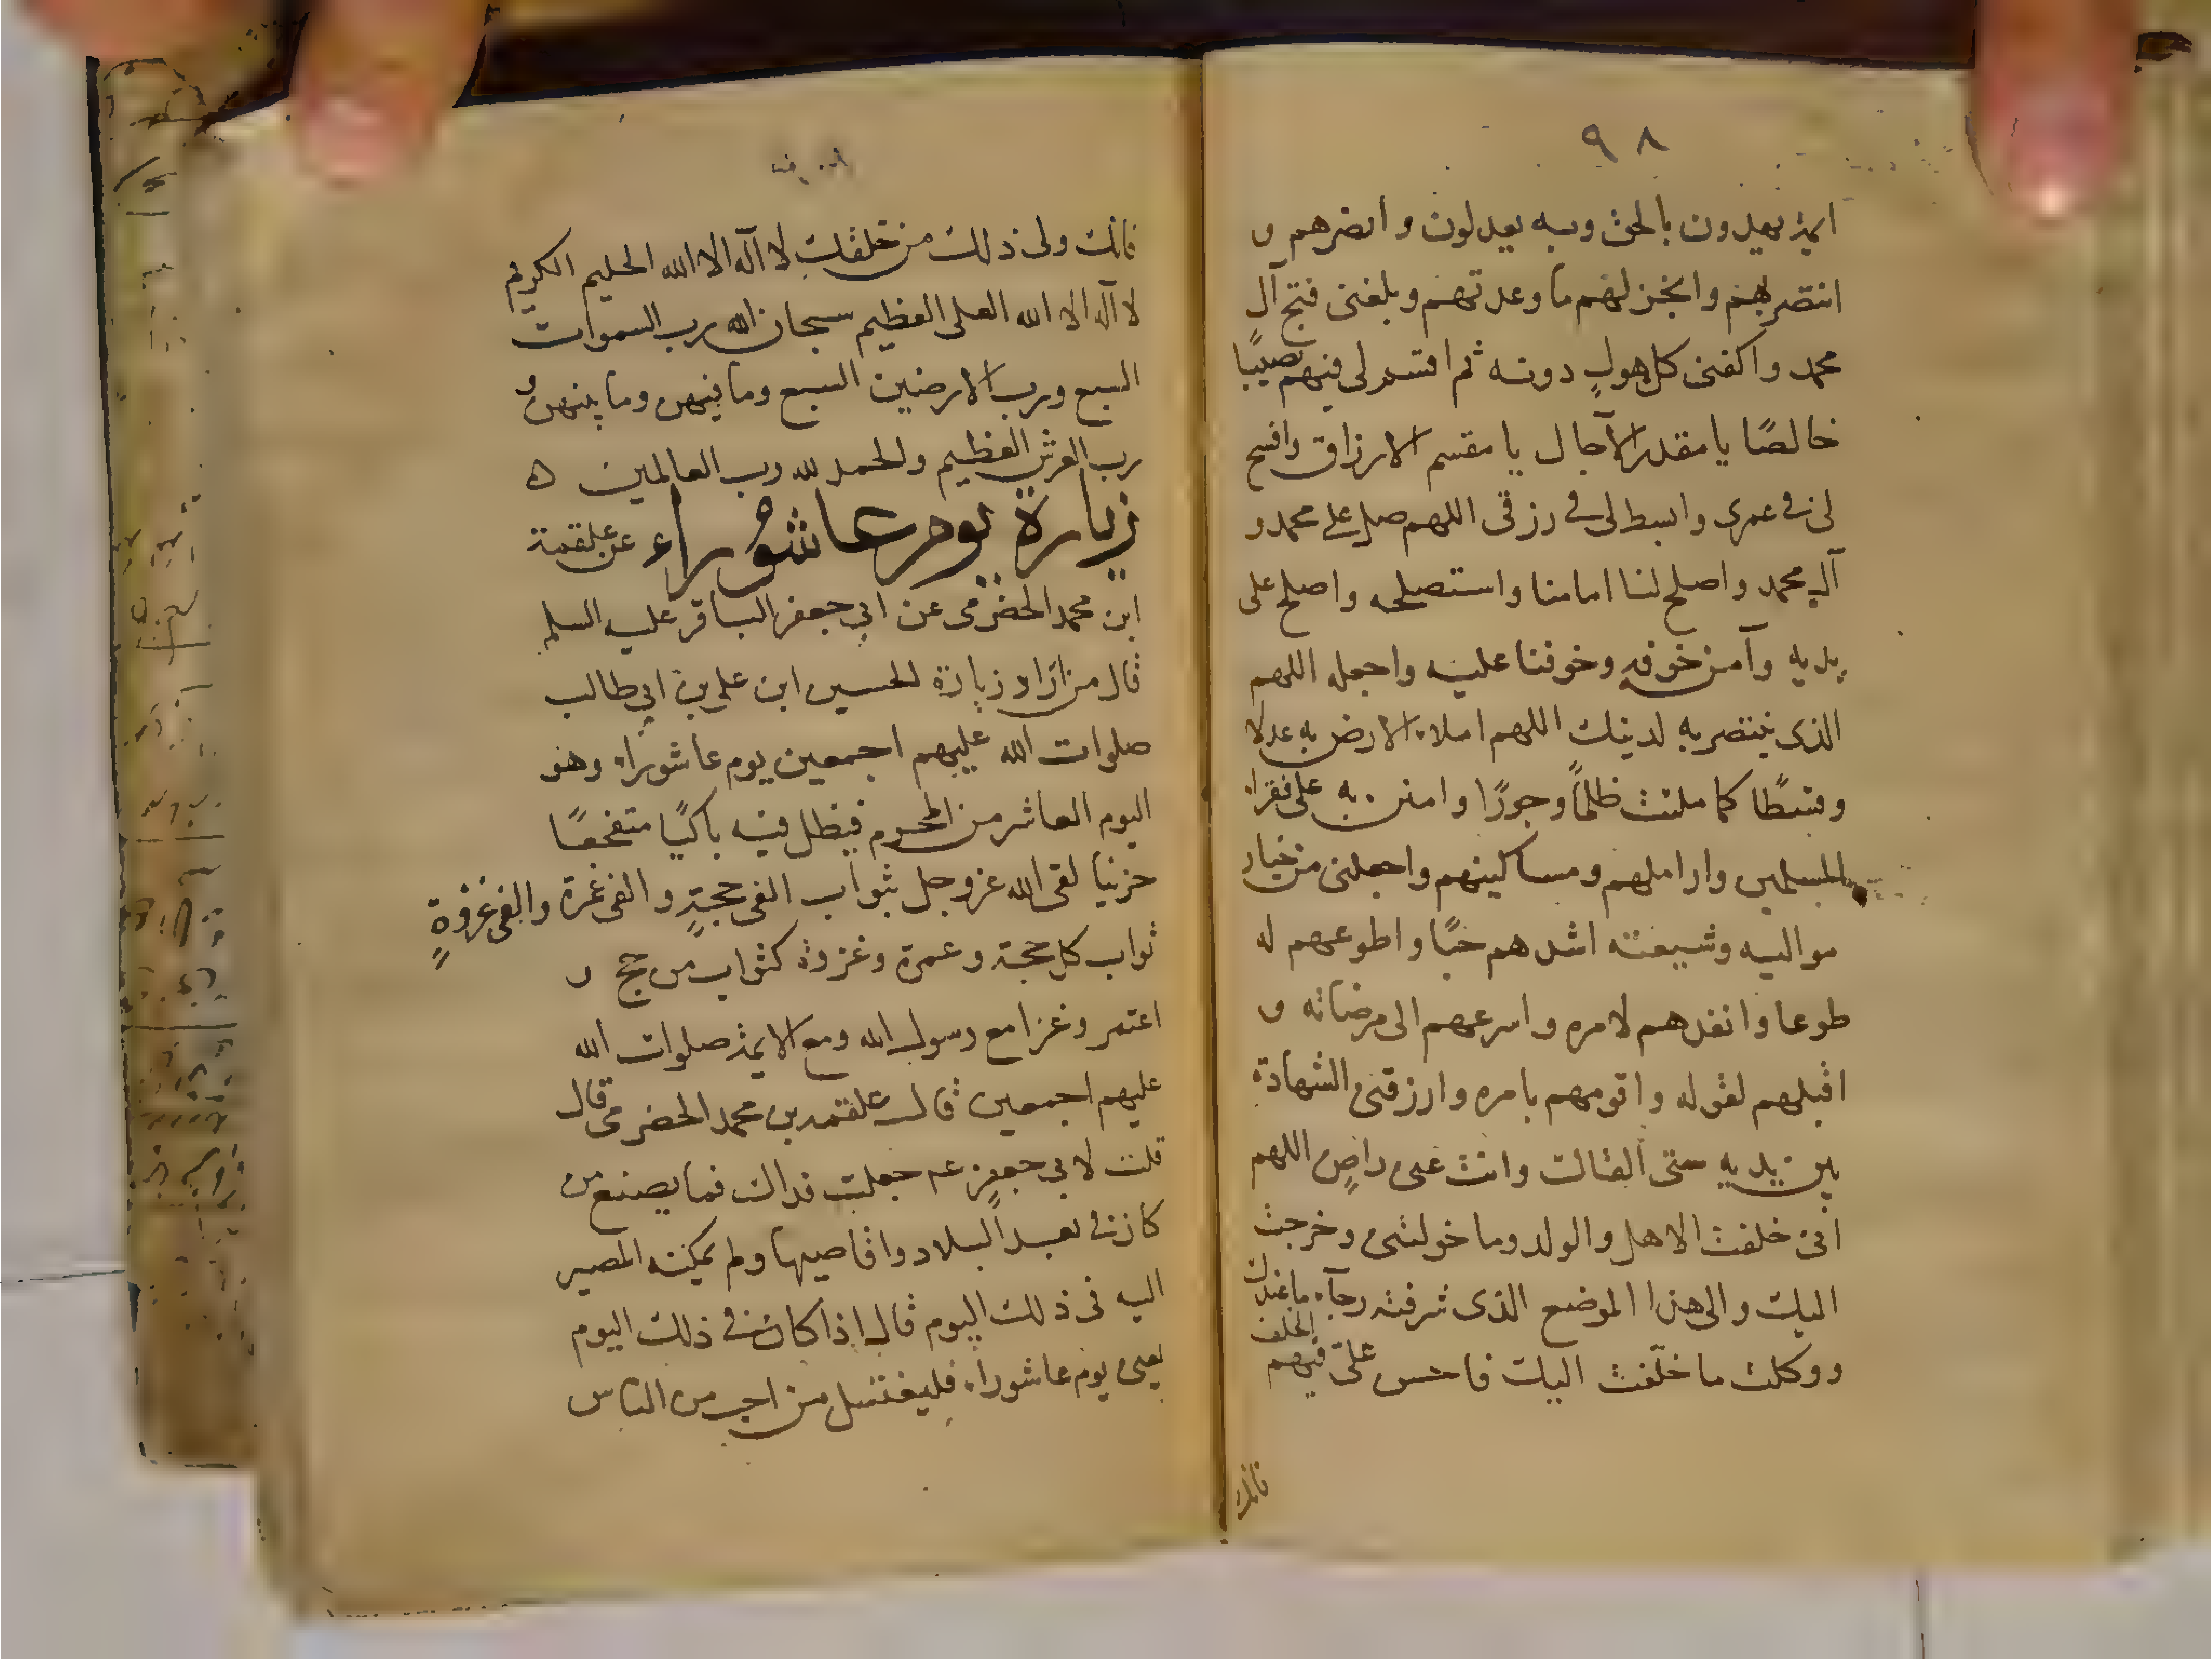 ٩٨
ائمة يهدون بالحق وبه يعدلون وانصرهم و
انتصر بهم وانجز لهم ما وعدتهم وبلغنى فتح آل
محمد واكفنى كل هول دونه ثم اقسم لى فيهم نصيبًا
خالصًا يا مقدر الآجال يا مقسم الارزاق وافسح
لى فى عمرى وابسط لى فى رزقى اللهم صل على محمد و
آل محمد واصلح لنا امامنا واستصلحه واصلح على
يديه وآمن خوفه وخوفنا عليه واجعله اللهم
الذى ينتصر به لدينك اللهم املاء الارض به عدلا
وقسطًا كما ملئت ظلمًا وجورًا وامنن به على فقراء
المسلمين واراملهم ومساكينهم واجعلنى من خيار
مواليه وشيعته اشدهم حبًا واطوعهم له
طوعا وانفذهم لامره واسرعهم الى مرضاته و
اقبلهم لقوله واقومهم بامره وارزقنى الشهادة
بين يديه حتى القاك وانت عنى راضٍ اللهم
انى خلفت الاهل والولد وما خولتنى وخرجت
اليك والى هذا الموضع الذى شرفته رجآء ما عندك
ووكلت ما خلّفت اليك فاحسن علىّ فيهم الخلف
فانك
فانك ولى ذلك من خلقك لا آله الا الله الحليم الكريم
لا آله الا الله العلى العظيم سبحان الله رب السموات
السبع ورب الارضين السبع وما فيهن وما بينهن و
رب العرش العظيم والحمد لله رب العالمين ه
زيارة يوم عاشوراء عن علقمة
ابن محمد الحضرمى عن ابي جعفر الباقر عليه السلم
قال من اراد زيارة الحسين ابن على بن ابي طالب
صلوات الله عليهم اجمعين يوم عاشوراء وهو
اليوم العاشر من المحرم فيظل فيه باكيًا متفجعًا
حزينا لقى الله عز وجل بثواب الفى حجةٍ والفى عمرة والفى غزوةٍ
ثواب كل حجة وعمرة وغزوة كثواب من حج و
اعتمر وغزا مع رسول الله ومع الائمة صلوات الله
عليهم اجمعين قال علقمة بن محمد الحضرمى قال
قلت لابي جعفر عم جعلت فداك فما يصنع من
كان فى بعيد البلاد واقاصيها ولم يمكنه المصير
اليه فى ذلك اليوم قال اذا كان فى ذلك اليوم
يعنى يوم عاشوراء فليغتسل من احب من الناس